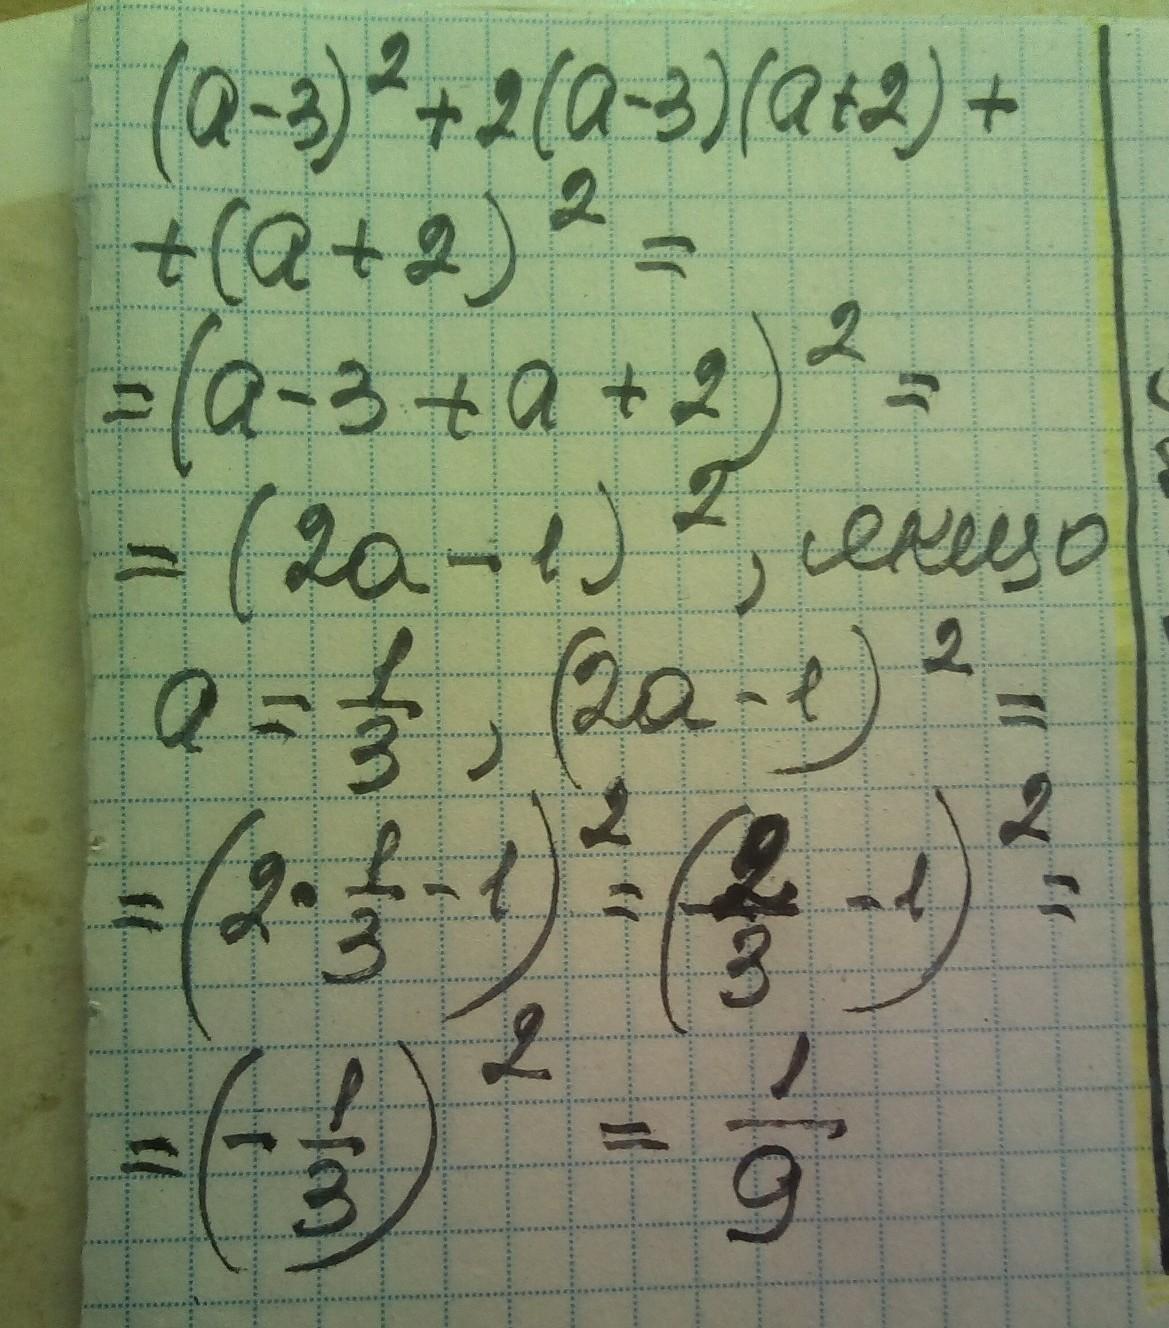 (a-3)² + 2(a-3)(a+2) +
+ (a + 2)² =
= (a - 3 + a + 2)² =
= (2a - 1)², якщо
a = 1/3, (2a - 1)² =
= (2 · 1/3 - 1)² = (2/3 - 1)² =
= (- 1/3)² = 1/9